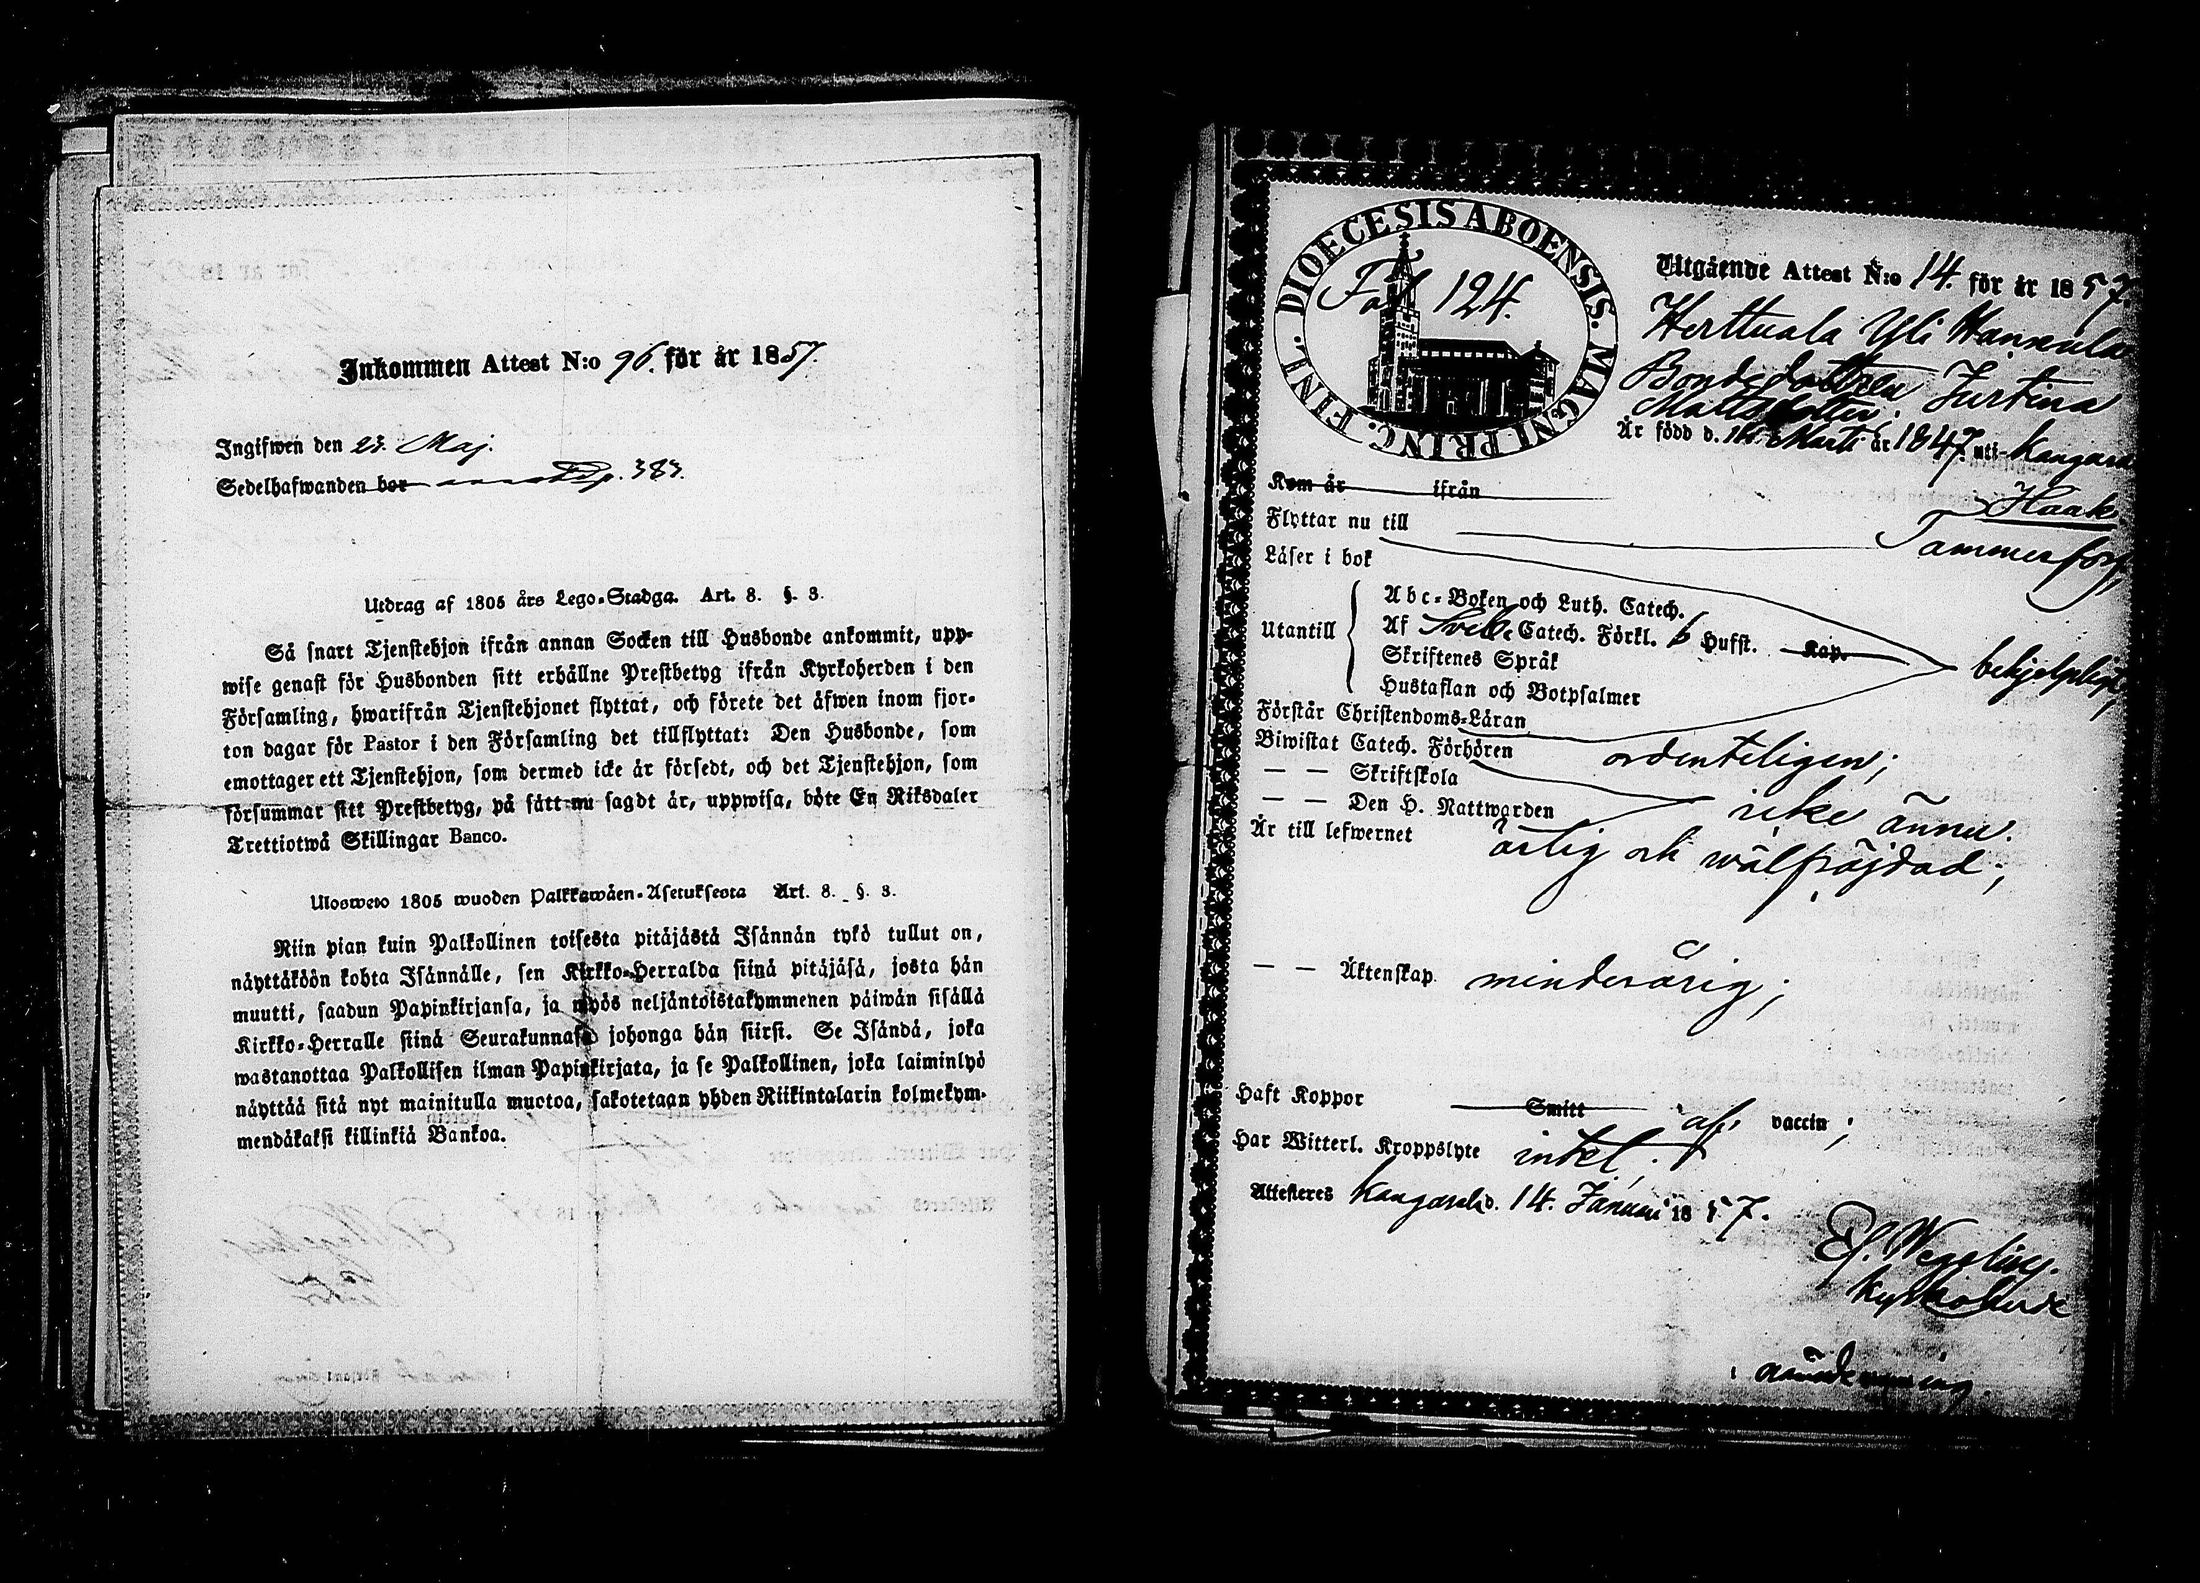 Inkommen Attest N:o 96. för år 1857.
Ingifwen den 23. Maj.
Sedelhafwanden bor p. 383.
Utdrag af 1805 års Lego-Stadga. Art. 8. §. 3.
Så snart Tjenstehjon ifrån annan Socken till Husbonde ankommit, upp-
wise genast för Husbonden sitt erhållne Prestbetyg ifrån Kyrkoherden i den
Församling, hwarifrån Tjenstehjonet flyttat, och förete det äfwen inom fjor-
ton dagar för Pastor i den Församling det tillflyttat: Den Husbonde, som
emottager ett Tjenstehjon, som dermed icke är försedt, och det Tjenstehjon, som
försummar sitt Prestbetyg, på sätt nu sagdt är, uppwisa, böte En Riksdaler
Trettiotwå Skillingar Banco.
Ulosweto 1805 wuoden Palkkawäen-Asetuksesta Art. 8. §. 3.
Niin pian kuin Palkollinen toisesta pitäjästä Isännän tykö tullut on,
näyttäköön kohta Isännälle, sen Kirkko-Herralda siinä pitäjäsä, josta hän
muutti, saadun Papinkirjansa, ja myös neljäntoistakymmenen päiwän sisällä
Kirkko-Herralle siinä Seurakunnasa johonga hän siirsi. Se Isändä, joka
wastanottaa Palkollisen ilman Papinkirjata, ja se Palkollinen, joka laiminlyö
näyttää sitä nyt mainitulla muotoa, sakotetaan yhden Riikintalarin kolmekym-
mendäkaksi killinkiä Bankoa.
DIOECESIS ABOENSIS. MAGNI PRINC. FINL.
Fol 124.
Utgående Attest N:o 14. för år 1857.
Herttuala Yli Hannula
Bondedottren Justina
Mattsdotter.
Är född d. 14. Marti år 1847. uti Kangasa
Kom år ifrån Haak
Flyttar nu till Tammerfors
Läser i bok
Utantill
Abc-Boken och Luth. Catech.
Af Sveb. Catech. Förkl. 6 Hufst. Kap.
Skriftenes Språk
Hustaflan och Botpsalmer
behjelpligt,
Förstår Christendoms-Läran
Biwistat Catech. Förhören ordenteligen;
— — Skriftskola
— — Den H. Nattwarden icke ännu.
Är till lefwernet ärlig och wälfräjdad;
— — Äktenskap minderårig;
Haft Koppor Smitt af vaccin;
Har Witterl. Kroppslyte intet.
Attesteres Kangasala d. 14. Januari 1857.
Ef. Wegelius.
Kyrkoherde